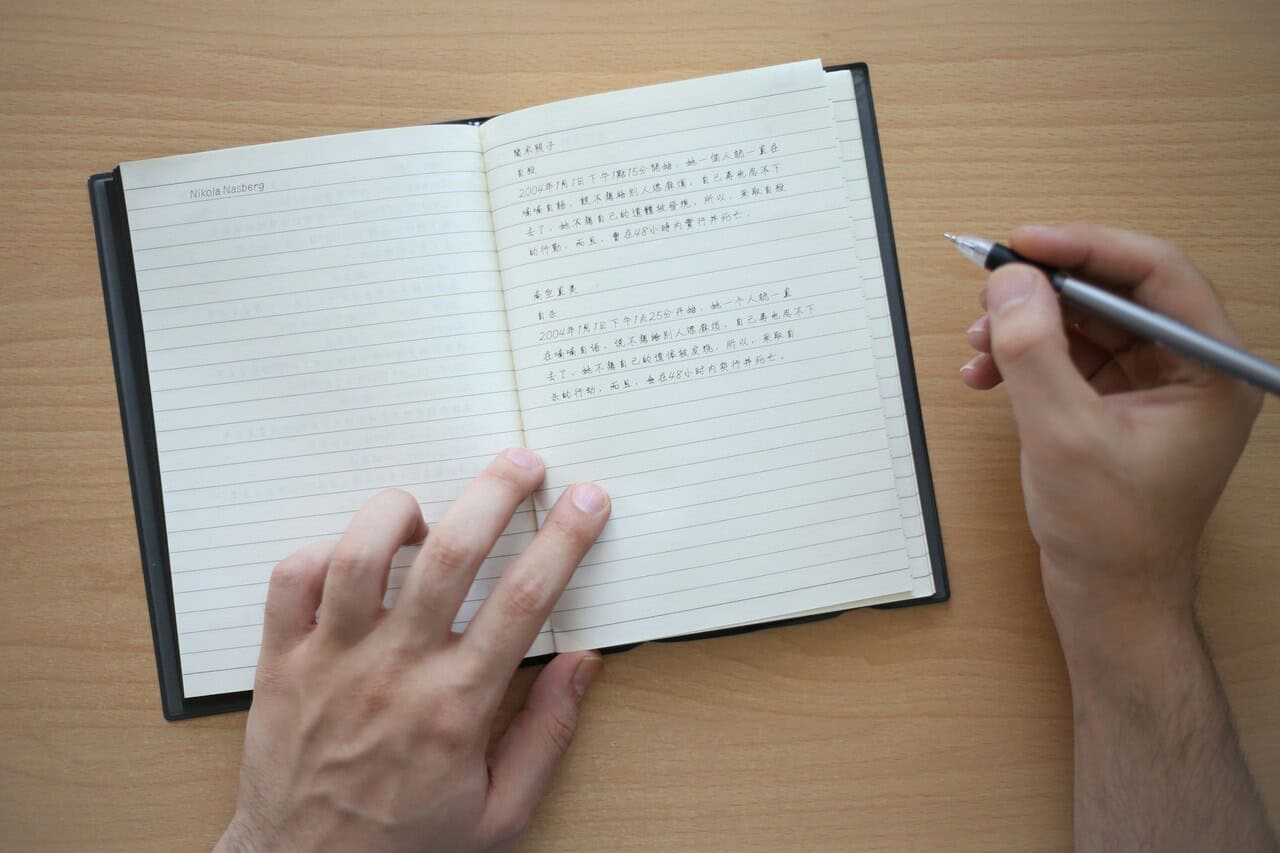 Nikola Nasberg
間木照子
自殺
2004年1月1日下午1點15分開始，她一個人就一直在
喃喃自語，說不想給別人添麻煩，自己再也忍不下
去了，她不想自己的遺體被發現，所以，采取自殺
的行動，而且，會在48小時內實行并死亡．
南空直美
自杀
2004年1月1日下午1点25分开始，她一个人就一直
在喃喃自语，说不想给别人添麻烦，自己再也忍不下
去了，她不想自己的遗体被发现，所以，采取自
杀的行动，而且，会在48小时内实行并死亡．